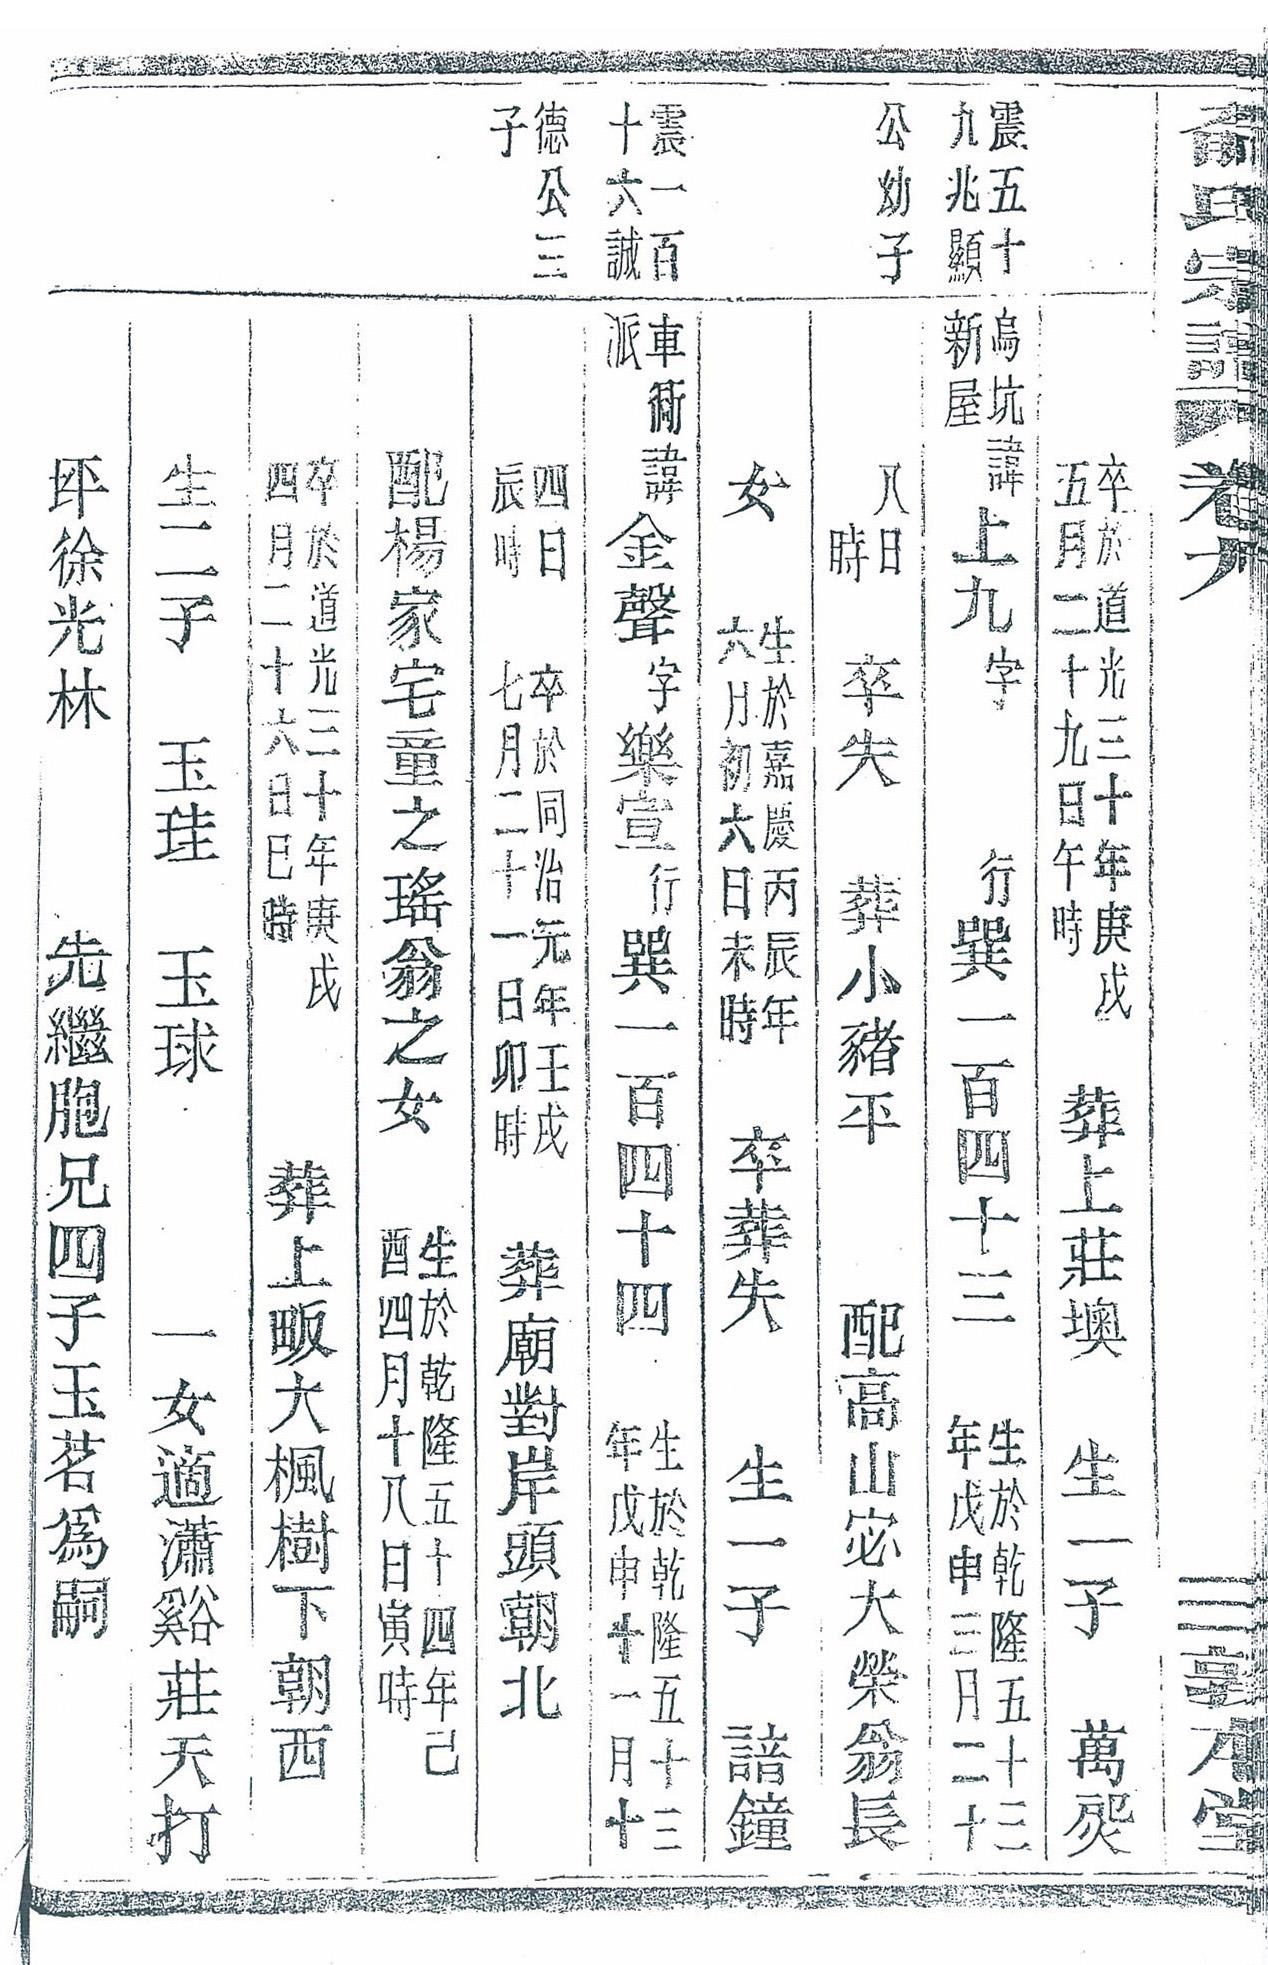 俞氏宗譜 卷九 三 敦本堂
卒於道光三十年庚戌五月二十九日午時 葬上莊墺 生一子 萬
震五十九兆顯 烏坑新屋 諱上九 字 行巽一百四十三 生於乾隆五十三年戊申三月二十
公幼子 八日時 卒失 葬小豬平 配高山宓大榮翁長
女 生於嘉慶丙辰年六月初六日未時 卒葬失 生一子 諳鐘
震一百十六誠 車衖派 諱金聲 字樂宣 行巽一百四十四 生於乾隆五十三年戊申十一月十
德公三子 四日辰時 卒於同治元年壬戌七月二十一日卯時 葬廟對岸頭朝北
配楊家宅童之瑤翁之女 生於乾隆五十四年己酉四月十八日寅時
卒於道光三十年庚戌四月二十六日巳時 葬上畈大楓樹下朝西
生二子 玉珪 玉球 一女適瀟谿莊天打
坪徐光林 先繼胞兄四子玉茗為嗣